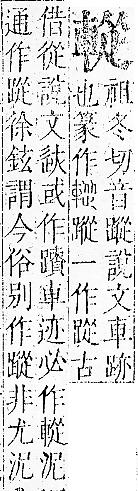 䡮
祖冬切音蹤說文車跡
也篆作䡮蹤一作蹤古
借從說文䡮或作蹟車迹必作䡮泥
通作蹤徐鉉謂今俗别作蹤非尤泥